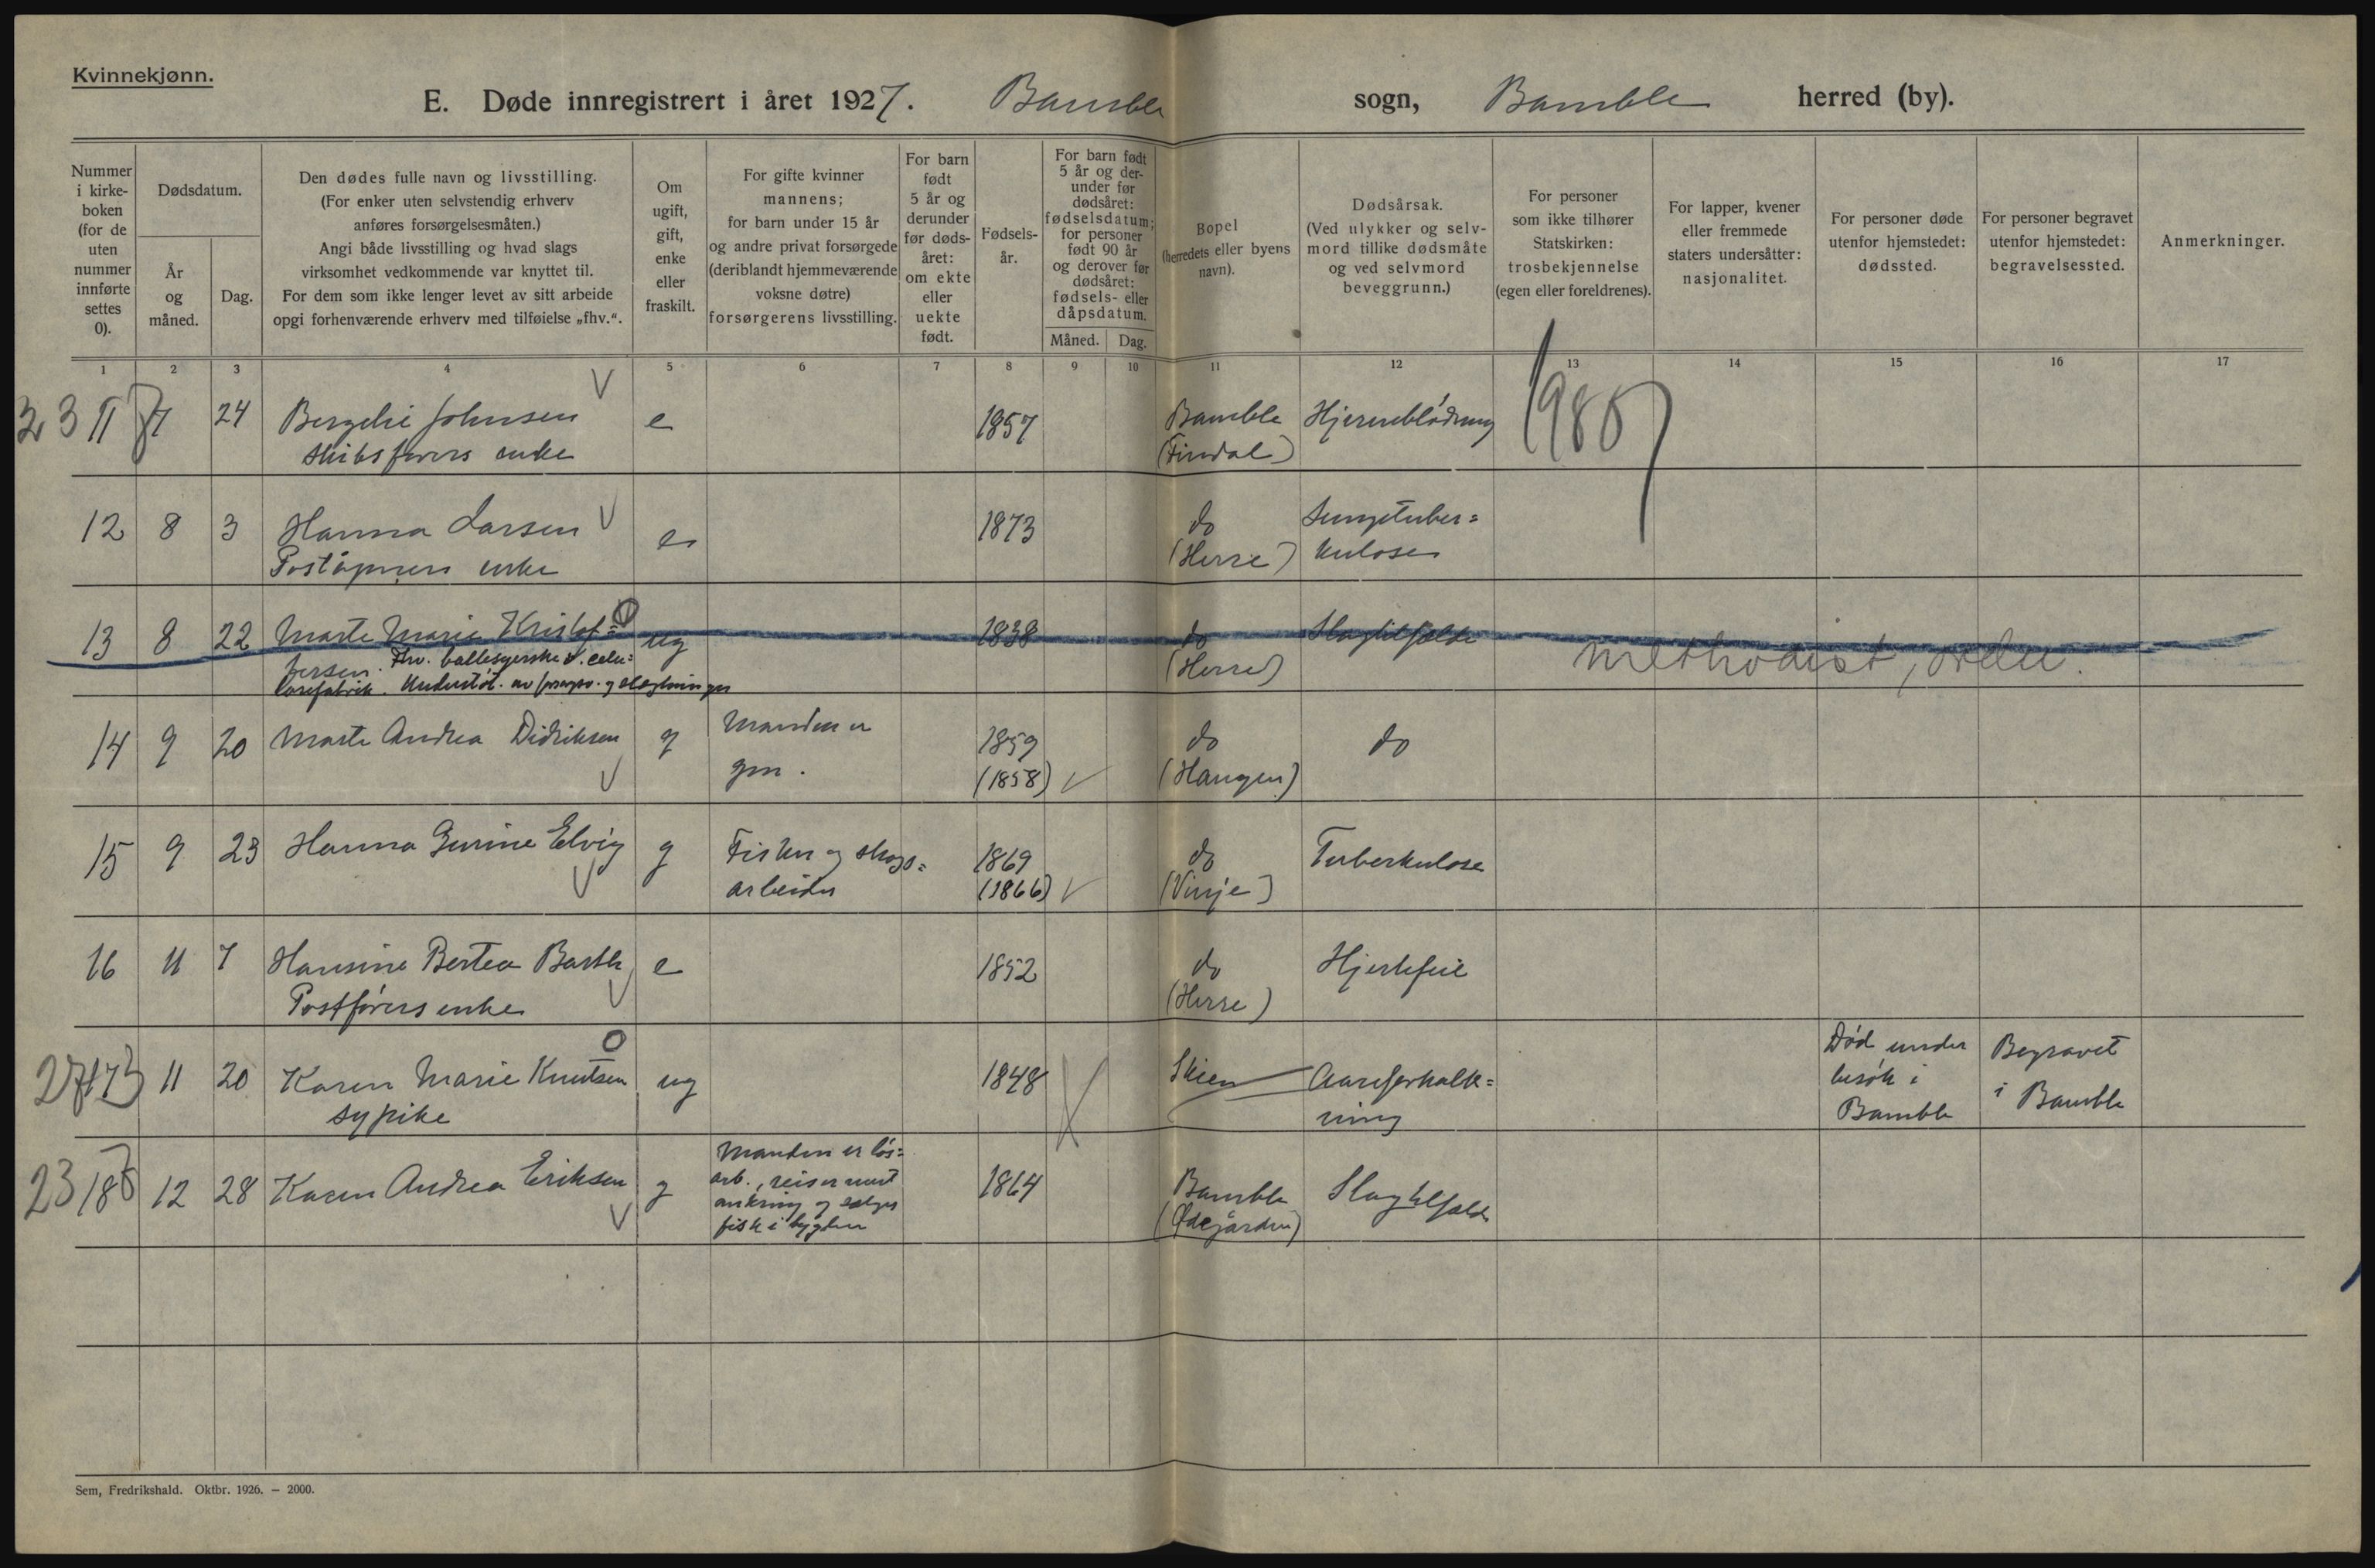 Kvinnekjønn.
E. Døde innregistrert i året 1927. Bamble sogn, Bamble herred (by).
Nummer i kirkeboken (for de uten nummer innførte settes 0).
Dødsdatum.
År og måned.
Dag.
Den dødes fulle navn og livsstilling.
(For enker uten selvstendig erhverv
anføres forsørgelsesmåten.)
Angi både livsstilling og hvad slags
virksomhet vedkommende var knyttet til.
For dem som ikke lenger levet av sitt arbeide
opgi forhenværende erhverv med tilføielse „fhv.“.
Om
ugift,
gift,
enke
eller
fraskilt.
For gifte kvinner
mannens;
for barn under 15 år
og andre privat forsørgede
(deriblandt hjemmeværende
voksne døtre)
forsørgerens livsstilling.
For barn
født
5 år og
derunder
før døds-
året:
om ekte
eller
uekte
født.
Fødsels-
år.
For barn født
5 år og der-
under før
dødsåret:
fødselsdatum;
for personer
født 90 år
og derover før
dødsåret:
fødsels- eller
dåpsdatum.
Måned. Dag.
Bopel
(herredets eller byens
navn).
Dødsårsak.
(Ved ulykker og selv-
mord tillike dødsmåte
og ved selvmord
beveggrunn.)
For personer
som ikke tilhører
Statskirken:
trosbekjennelse
(egen eller foreldrenes).
For lapper, kvener
eller fremmede
staters undersåtter:
nasjonalitet.
For personer døde
utenfor hjemstedet:
dødssted.
For personer begravet
utenfor hjemstedet:
begravelsessted.
Anmerkninger.
1 2 3 4 5 6 7 8 9 10 11 12 13 14 15 16 17
11 7 24 Bergelie Johnsen e 1857 Bamble Hjerneblødning
Skibsførers enke (Findal)
12 8 3 Hanna Larsen e 1873 do Lungetuber=
Poståpners enke (Herre) kulose
13 8 22 Marte Marie Kristof= ug 1838 do Slagtilfælde
fersen. Fhv. ballesyerske v. celu= (Herre) methodist,
losefabrik. Understøt. av
14 9 20 Marte Andrea Didriksen g Manden er 1859 do do
(1858) (Haugen)
15 9 23 Hanna Gurine Elvig g Fisker og skogs= 1869 do Tuberkulose
arbeider (1866) (Vinje)
16 11 7 Hansine Bertea Barth e 1852 do Hjertefeil
Postførers enke (Herre)
17 11 20 Karen Marie Knutsen ug 1848 Skien Aareforkalk= Død under Begravet
sypike ning besøk i i Bamble
Bamble
18 12 28 Karen Andrea Eriksen g Manden er løs= 1864 Bamble Slagtilfælde
arb., reiser mest (Ødegården)
omkring og sælger
fisk i bygden
Sem, Fredrikshald. Oktbr. 1926. — 2000.